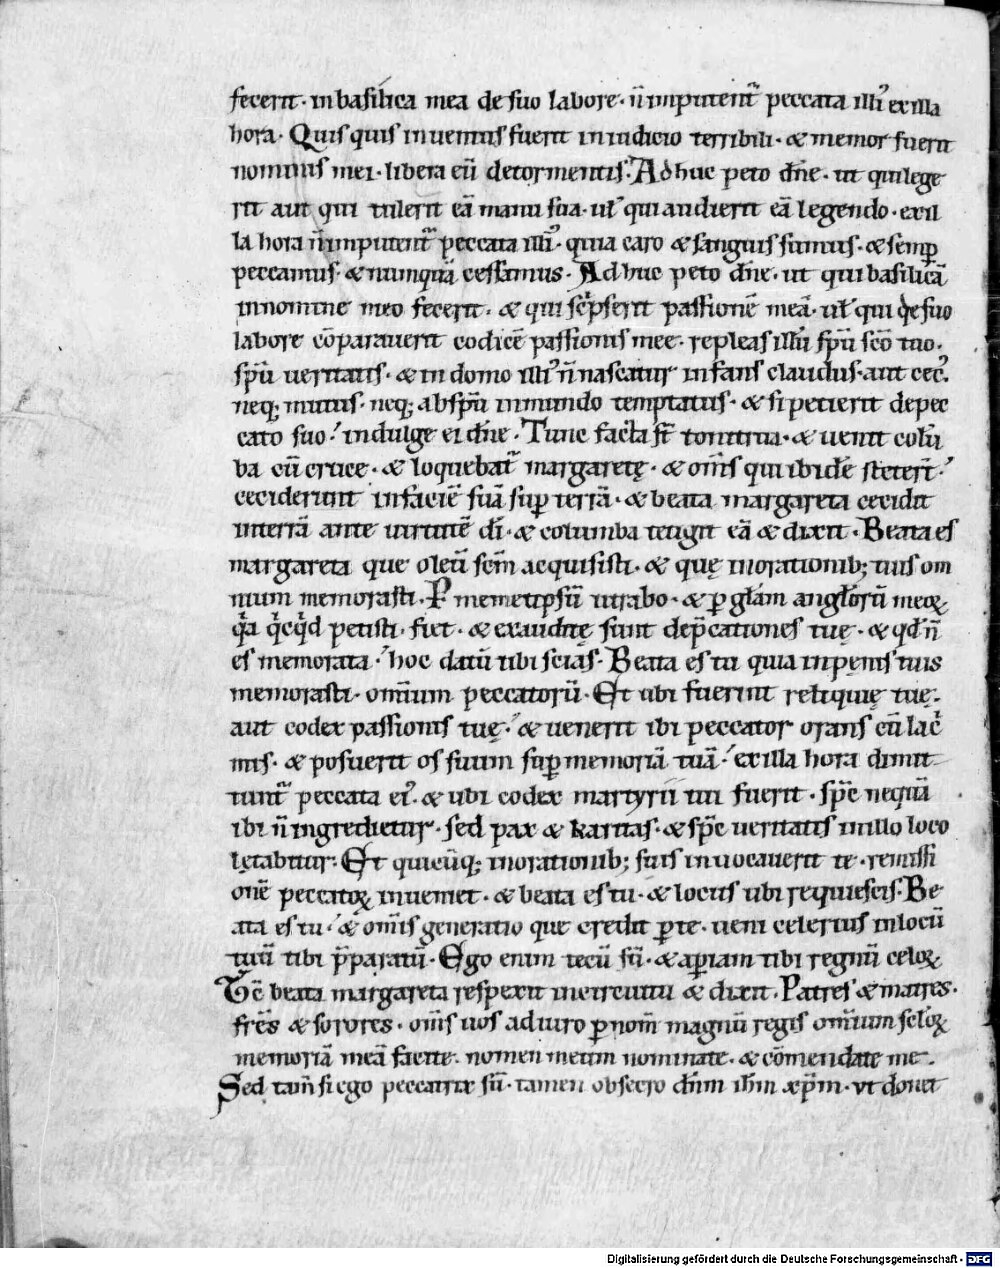 fecerit · in basilica mea de suo labore · n̄ imputent᷑ peccata illi᷒ ex illa
hora · Quis quis inuentus fuerit in iudicio terribili · & memor fuerit
nominis mei · libera eū de tormentis · Ad huc peto dn̄e · ut qui lege
rit aut qui tulerit eā manu sua · ul̄ qui audierit eā legendo · ex il
la hora n̄ imputent᷑ peccata illi᷒ · quia caro & sanguis sumus · & semꝑ
peccamus · & nunquā cessamus · Ad huc peto dn̄e · ut qui basilicā
in nomine meo fecerit · & qui sc͛pserit passionē meā · ul̄ qui de suo
labore cōparauerit codicē passionis mee · repleas illū sp̄u sc̄o tuo ·
sp̄u ueritatis · & in domo illi᷒ n̄ nascatur infans claudus · aut cec᷒
neq; mutus · neq; ab sp̄u inmundo temptatus · & si petierit de pec
cato suo · indulge ei dn̄e · Tunc facta st̄ tonitrua · & uenit colū
ba cū cruce · & loquebat᷑ margaretę · & om̄s qui ibidē steter̄t
ceciderunt in faciē suā suꝑ terrā · & beata margareta cecidit
in terrā ante uirtutē dī · & columba tetigit eā & dixit · Beata es
margareta que oleū sc̄m acquisisti · & quę in orationib; tuis om
nium memorasti · P memetipsū iurabo · & ꝑ gl̄am angl̄orū meoꝝ
q͛a q͛cq͛d petisti · fiet · & exauditę sunt dep̄cationes tuę · & qd̄ n̄
es memorata · hoc datū tibi scias · Beata es tu quia in pęnis tuis
memorasti · omīum peccatorū · Et ubi fuerint reliquię tuę ·
aut codex passionis tuę · & uenerit ibi peccator orans cū lac͛
mis · & posuerit os suum suꝑ memoriā tuā · ex illa hora dimit
tunt᷑ peccata ei᷒ · & ubi codex martyrii tui fuerit · sp̄c nequā
ibi n̄ ingredietur · sed pax & karitas · & sp̄c ueritatis in illo loco
lętabitur · Et quicūq; in orationib; suis inuocauerit te · remissi
onē peccatoꝝ inueniet · & beata es tu · & locus ubi requiescis · Be
ata es tu · & om̄is generatio que credit ꝑ te · ueni celerius in locū
tuū tibi p̄paratū · Ego enim tecū sū · & aꝑiam tibi regnū celoꝝ
Tc̄ beata margareta respexit in circuitu & dixit · Patres & matres ·
fr̄es & sorores · om̄s uos adiuro ꝑ nom̄ magnū regis omīum scl̄oꝝ
memoriā meā facite · nomen meum nominate · & cōmendate me ·
Sed tam̄ si ego peccatrix sū · tamen obsecro dn̄m ih̄m xp̄m · vt donet
Digitalisierung gefördert durch die Deutsche Forschungsgemeinschaft · DFG